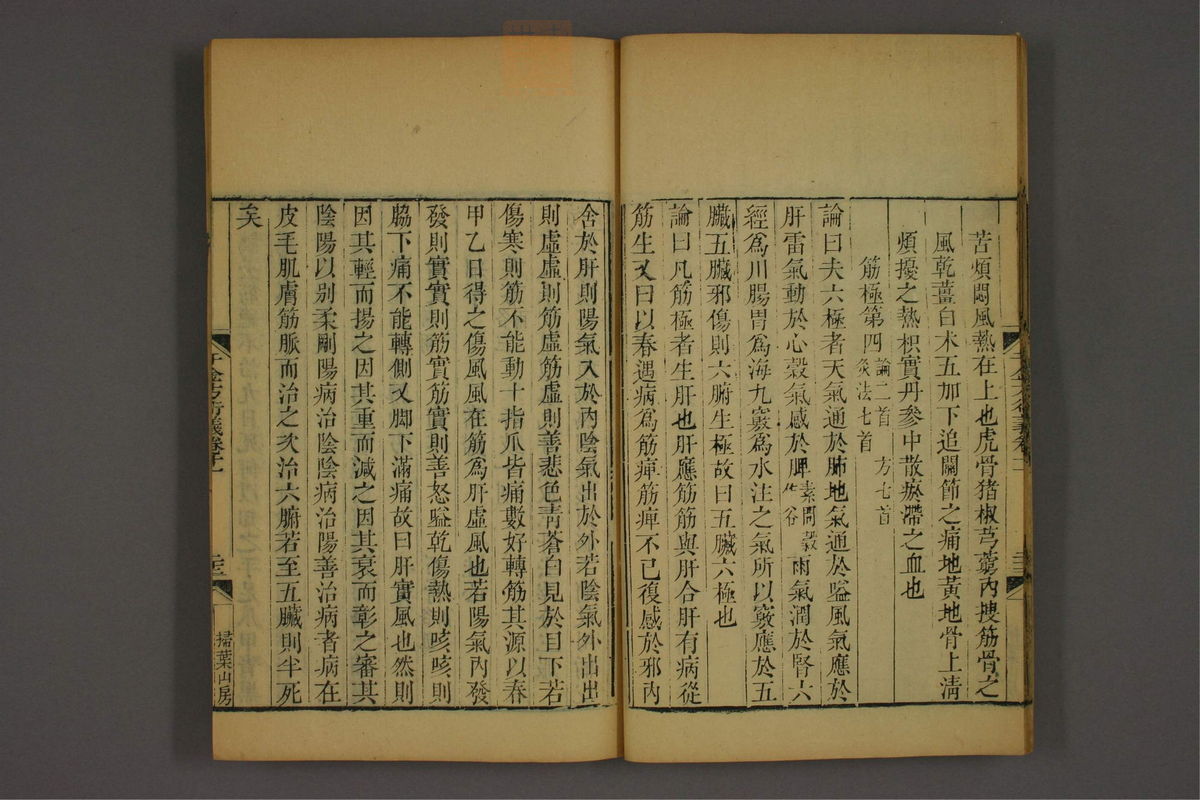 苦煩悶風熱在上也虎骨猪椒芎藭內搜筋骨之
風乾薑白术五加下追關節之痛地黃地骨上淸
煩擾之熱枳實丹參中散瘀滯之血也
筋極第四
論二首　方七首
灸法七首
論曰夫六極者天氣通於肺地氣通於嗌風氣應於
肝雷氣動於心穀氣感於脾素問穀作谷雨氣潤於腎六
經爲川腸胃爲海九竅爲水注之氣所以竅應於五
臟五臟邪傷則六腑生極故曰五臟六極也
論曰凡筋極者生肝也肝應筋筋與肝合肝有病從
筋生又曰以春遇病爲筋痺筋痺不已復感於邪內
舍於肝則陽氣入於內陰氣出於外若陰氣外出出
則虛虛則筋虛筋虛則善悲色靑蒼白見於目下若
傷寒則筋不能動十指爪皆痛數好轉筋其源以春
甲乙日得之傷風風在筋爲肝虛風也若陽氣內發
發則實實則筋實筋實則善怒嗌乾傷熱則咳咳則
脇下痛不能轉側又脚下滿痛故曰肝實風也然則
因其輕而揚之因其重而減之因其衰而彰之審其
陰陽以别柔剛陽病治陰陰病治陽善治病者病在
皮毛肌膚筋脈而治之次治六腑若至五臟則半死
矣
千金方衍義卷十一
掃葉山房